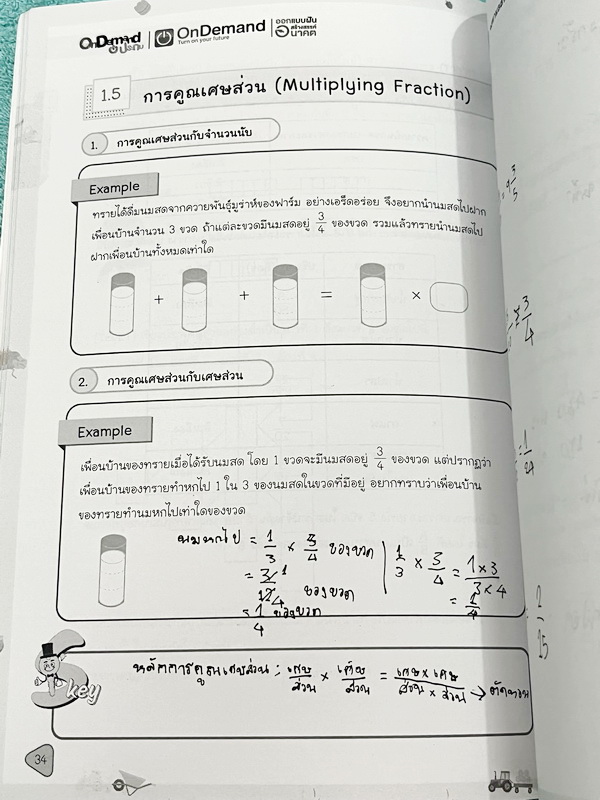 OnDemand
OnDemand
Turn on your future
ออกแบบฝัน
สร้างสรรค์
อนาคต
1.5 การคูณเศษส่วน (Multiplying Fraction)
1. การคูณเศษส่วนกับจำนวนนับ
Example
ทรายได้ดื่มนมสดจากควายพันธุ์มูร่าห์ของฟาร์ม อย่างเอร็ดอร่อย จึงอยากนำนมสดไปฝาก
เพื่อนบ้านจำนวน 3 ขวด ถ้าแต่ละขวดมีนมสดอยู่ 3/4 ของขวด รวมแล้วทรายนำนมสดไป
ฝากเพื่อนบ้านทั้งหมดเท่าใด
+ + = ×
2. การคูณเศษส่วนกับเศษส่วน
Example
เพื่อนบ้านของทรายเมื่อได้รับนมสด โดย 1 ขวดจะมีนมสดอยู่ 3/4 ของขวด แต่ปรากฏว่า
เพื่อนบ้านของทรายทำหกไป 1 ใน 3 ของนมสดในขวดที่มีอยู่ อยากทราบว่าเพื่อนบ้าน
ของทรายทำนมหกไปเท่าใดของขวด
นมหกไป = 1/3 × 3/4 ของขวด
= 3/12 1/4 ของขวด
= 1/4 ของขวด
1/3 × 3/4 = 1×3/3×4
= 1/4
S key
หลักการคูณเศษส่วน : เศษ/ส่วน × เศษ/ส่วน = เศษ×เศษ/ส่วน×ส่วน →
34